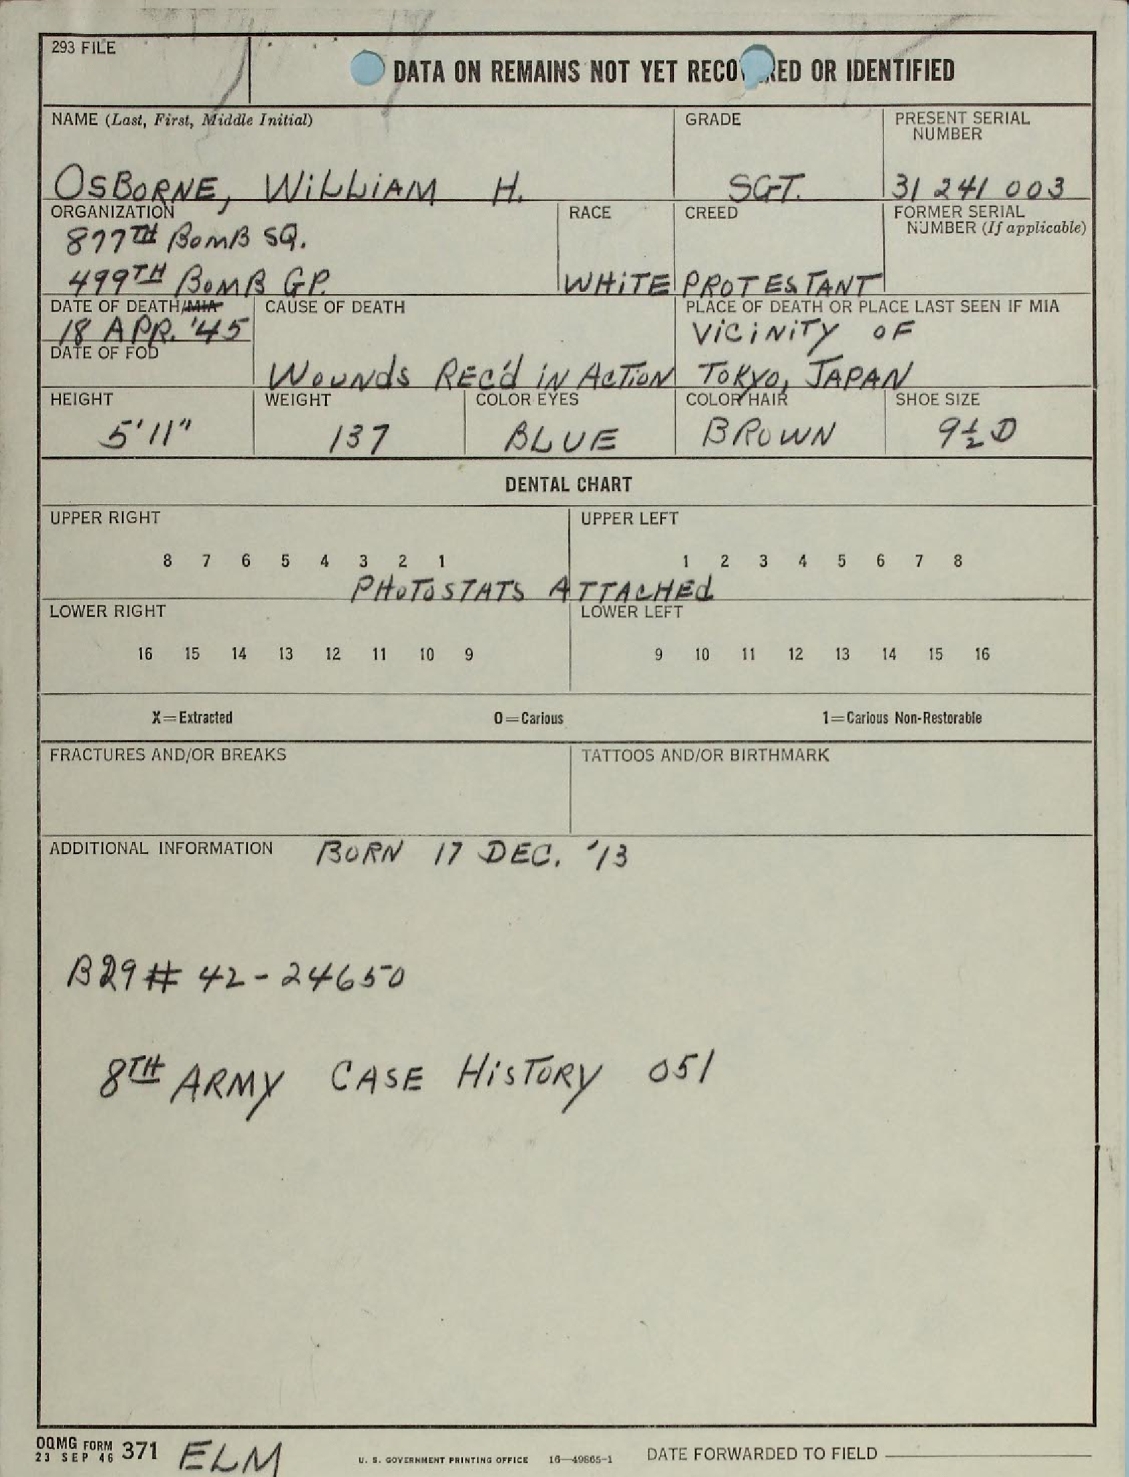 293 FILE
DATA ON REMAINS NOT YET RECOVERED OR IDENTIFIED
NAME (Last, First, Middle Initial)
GRADE
PRESENT SERIAL NUMBER
OSBORNE, WILLIAM H.
SGT.
31 241 003
ORGANIZATION
RACE
CREED
FORMER SERIAL NUMBER (If applicable)
877TH BOMB SQ.
499TH BOMB GP.
WHITE
PROTESTANT
DATE OF DEATH/MIA
CAUSE OF DEATH
PLACE OF DEATH OR PLACE LAST SEEN IF MIA
18 APR. '45
VICINITY OF
DATE OF FOD
WOUNDS REC'd IN ACTION
TOKYO, JAPAN
HEIGHT
WEIGHT
COLOR EYES
COLOR HAIR
SHOE SIZE
5'11"
137
BLUE
BROWN
9½ D
DENTAL CHART
UPPER RIGHT
UPPER LEFT
8 7 6 5 4 3 2 1
1 2 3 4 5 6 7 8
PHOTOSTATS ATTACHED
LOWER RIGHT
LOWER LEFT
16 15 14 13 12 11 10 9
9 10 11 12 13 14 15 16
X=Extracted
O=Carious
1=Carious Non-Restorable
FRACTURES AND/OR BREAKS
TATTOOS AND/OR BIRTHMARK
ADDITIONAL INFORMATION BORN 17 DEC. '13
B29# 42-24650
8TH ARMY CASE HISTORY 051
OQMG FORM 371
23 SEP 46
ELM
U. S. GOVERNMENT PRINTING OFFICE 16—49865-1
DATE FORWARDED TO FIELD